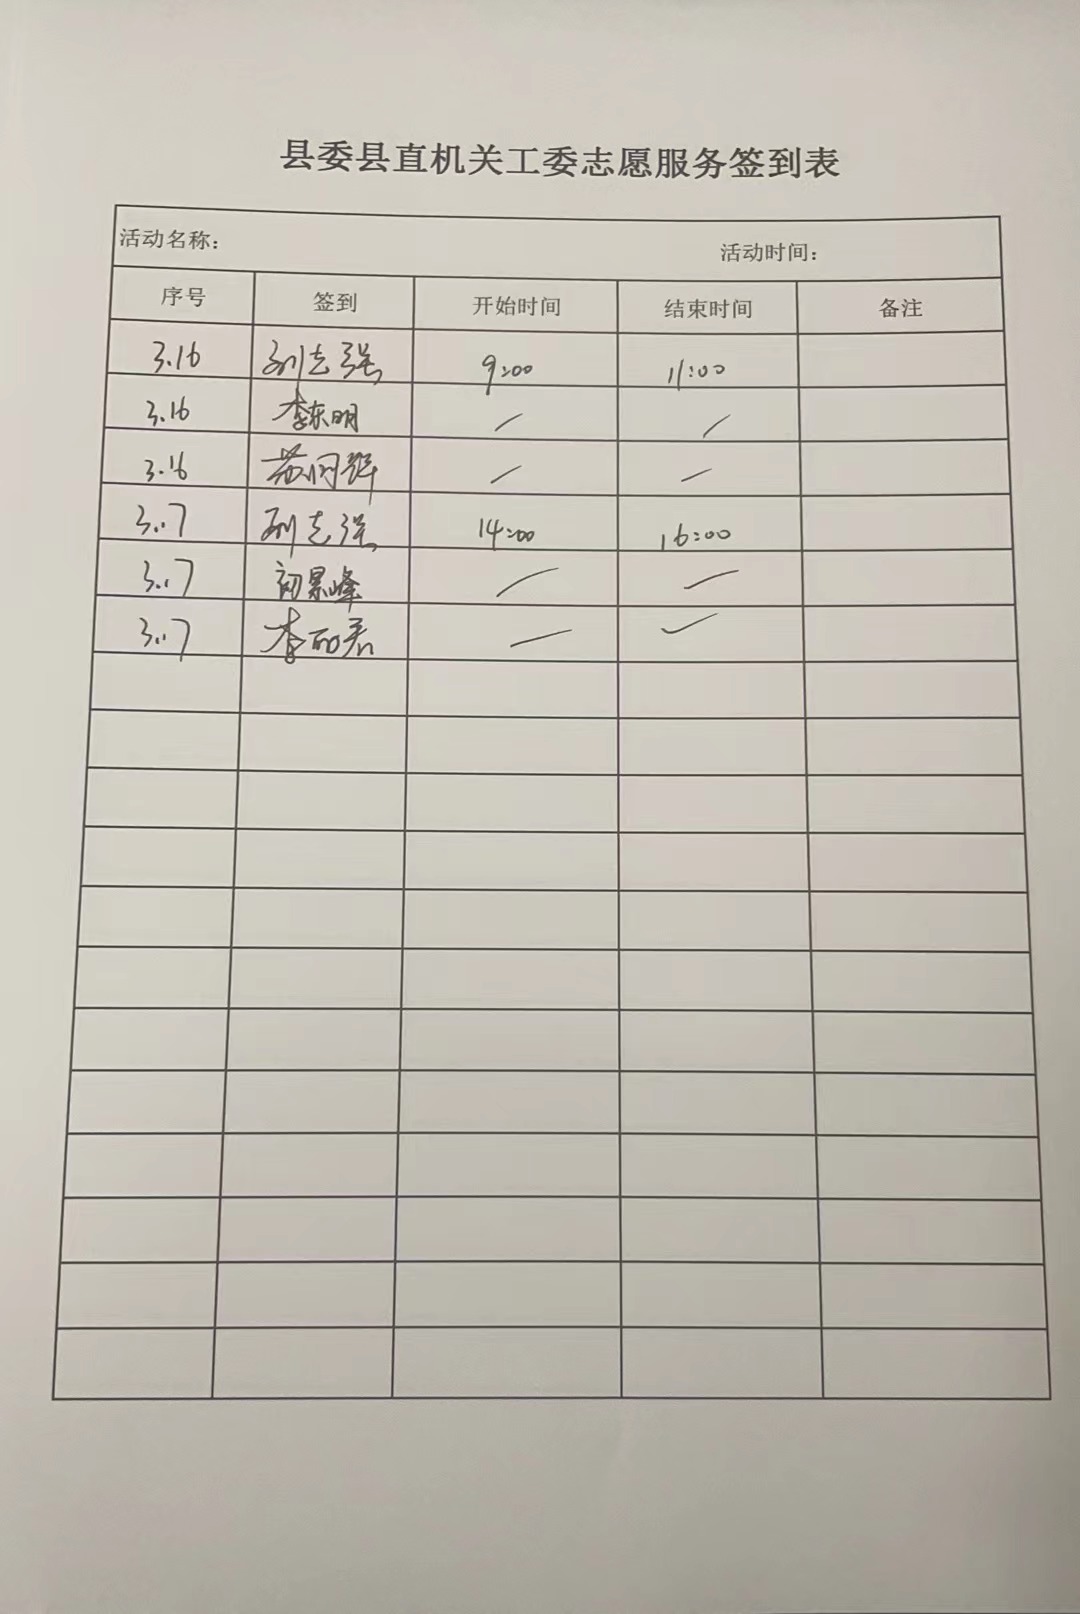 县委县直机关工委志愿服务签到表
活动名称： 活动时间：
序号 签到 开始时间 结束时间 备注
3.16 刘志强 9:00 11:00
3.16 李东明 / /
3.16 苏 / /
3.17 刘志强 14:00 16:00
3.17 初 峰 / /
3.17 李丽君 / /